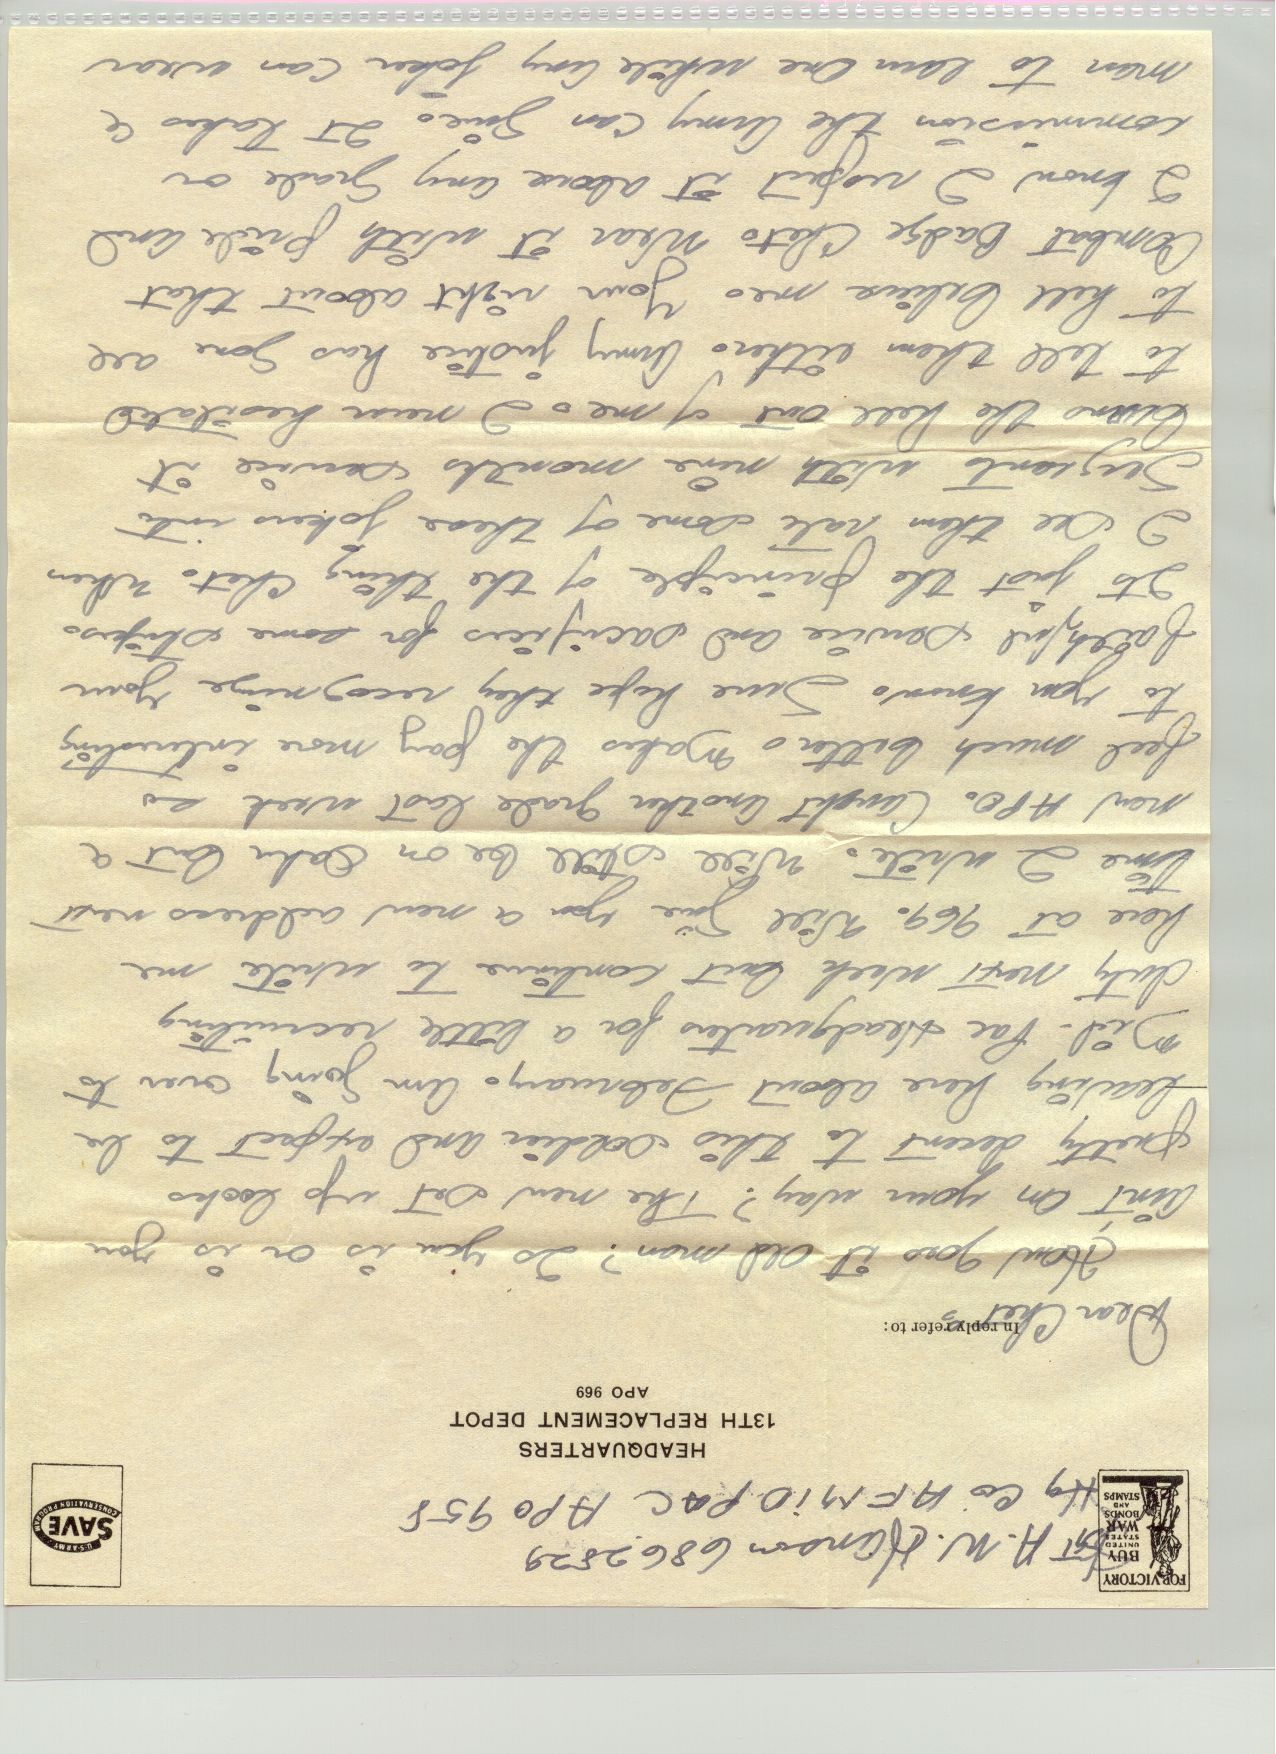 FOR VICTORY
BUY
UNITED
STATES
WAR
BONDS
AND
STAMPS
U·S·ARMY
SAVE
CONSERVATION PROGRAM
Sgt H. W. 6862829
Hq Co AF MID PAC APO 958
HEADQUARTERS
13TH REPLACEMENT DEPOT
APO 969
In reply refer to:
Dear Chet,
How goes it old man? Is you is or is you
aint on your way? The new set up looks
pretty decent to this soldier and expect to be
leaving here about February. Am going over to
Mid. Pac Headquarters for a little recruiting
duty next week but continue to write me
here at 969. Will give you a new address next
time I write. Will still be on Oahu but a
new APO. Caught another grade last week so
feel much better. Makes the pay more interesting
to you know. Sure hope they recognize your
faithful service and sacrifices for some stripes.
Its just the principle of the thing Chet. When
I see them rate some of these jokers into
Sergeants with nine months service it
burns the hell out of me. I never hesitated
to tell them either. Army justice has gone all
to hell believe me. Your right about that
Combat Badge Chet. Wear it with pride and
I know I respect it above any grade or
commission the Army can give. It takes a
man to earn one while any joker can wear